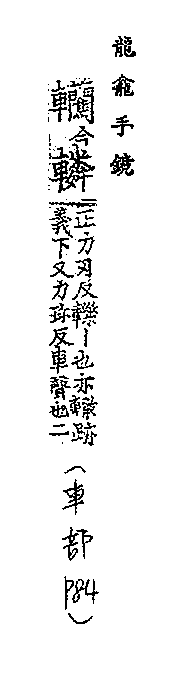 龍龕手鏡
轥今轔
二正力刃反轢丨也亦轢跡
義下又力珎反車聲也二
(車部 P84)